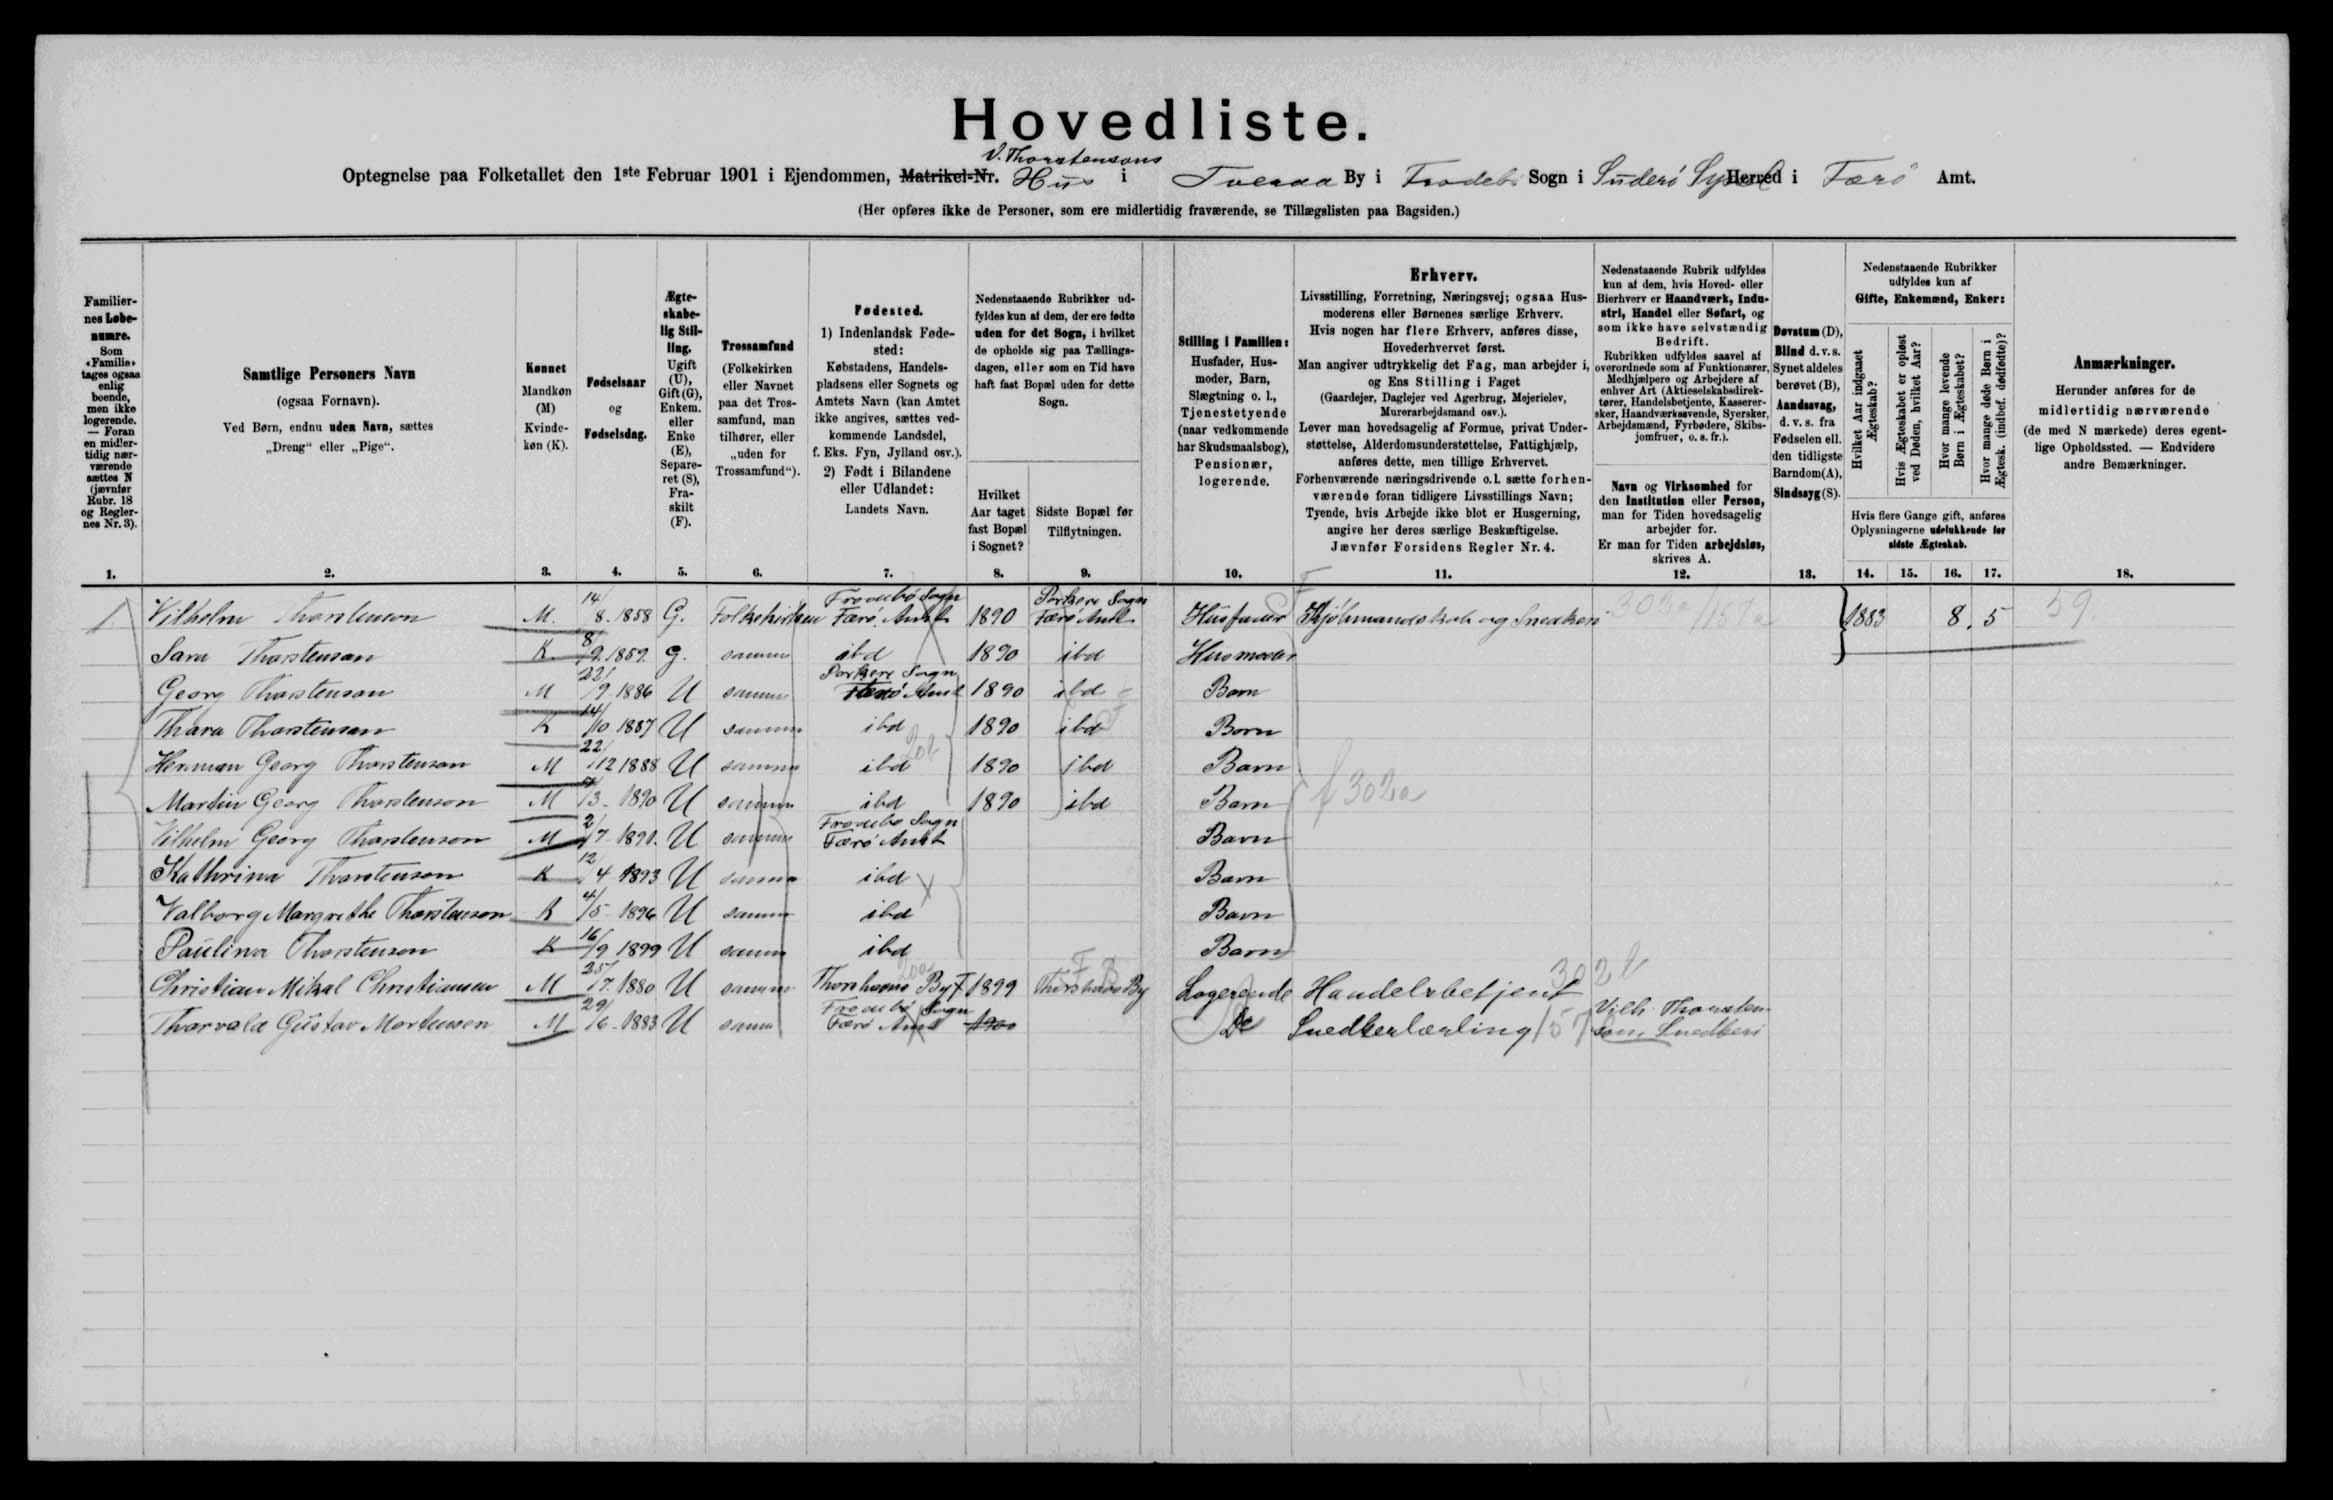 Hovedliste.
V. Thorstensons
Optegnelse paa Folketallet den 1ste Februar 1901 i Ejendommen, Matrikel-Nr. Hus i Tveraa By i Frodebø Sogn i Suderø Syssel Herred i Færø Amt.
(Her opføres ikke de Personer, som ere midlertidig fraværende, se Tillægslisten paa Bagsiden.)
Familiernes Løbenumre. Som «Familie» tages ogsaa enlig boende, men ikke logerende. — Foran en midlertidig nærværende sættes N (jævnfør Rubr. 18 og Reglernes Nr. 3).
Samtlige Personers Navn (ogsaa Fornavn). Ved Børn, endnu uden Navn, sættes „Dreng“ eller „Pige“.
Kønnet Mandkøn (M) Kvindekøn (K).
Fødselsaar og Fødselsdag.
Ægteskabelig Stilling. Ugift (U), Gift (G), Enkem. eller Enke (E), Separeret (S), Fraskilt (F).
Trossamfund (Folkekirken eller Navnet paa det Trossamfund, man tilhører, eller „uden for Trossamfund“).
Fødested. 1) Indenlandsk Fødested: Købstadens, Handelspladsens eller Sognets og Amtets Navn (kan Amtet ikke angives, sættes vedkommende Landsdel, f. Eks. Fyn, Jylland osv.). 2) Født i Bilandene eller Udlandet: Landets Navn.
Nedenstaaende Rubrikker udfyldes kun af dem, der ere fødte uden for det Sogn, i hvilket de opholde sig paa Tællingsdagen, eller som en Tid have haft fast Bopæl uden for dette Sogn.
Hvilket Aar taget fast Bopæl i Sognet?
Sidste Bopæl før Tilflytningen.
Stilling i Familien: Husfader, Husmoder, Barn, Slægtning o. l., Tjenestetyende (naar vedkommende har Skudsmaalsbog), Pensionær, logerende.
Erhverv. Livsstilling, Forretning, Næringsvej; ogsaa Husmoderens eller Børnenes særlige Erhverv. Hvis nogen har flere Erhverv, anføres disse, Hovederhvervet først. Man angiver udtrykkelig det Fag, man arbejder i, og Ens Stilling i Faget (Gaardejer, Daglejer ved Agerbrug, Mejerielev, Murerarbejdsmand osv.). Lever man hovedsagelig af Formue, privat Understøttelse, Alderdomsunderstøttelse, Fattighjælp, anføres dette, men tillige Erhvervet. Forhenværende næringsdrivende o. l. sætte forhenværende foran tidligere Livsstillings Navn; Tyende, hvis Arbejde ikke blot er Husgerning, angive her deres særlige Beskæftigelse. Jævnfør Forsidens Regler Nr. 4.
Nedenstaaende Rubrik udfyldes kun af dem, hvis Hoved- eller Bierhverv er Haandværk, Industri, Handel eller Søfart, og som ikke have selvstændig Bedrift. Rubrikken udfyldes saavel af overordnede som af Funktionærer, Medhjælpere og Arbejdere af enhver Art (Aktieselskabsdirektører, Handelsbetjente, Kasserersker, Haandværkssvende, Syersker, Arbejdsmænd, Fyrbødere, Skibsjomfruer, o. s. fr.).
Navn og Virksomhed for den Institution eller Person, man for Tiden hovedsagelig arbejder for. Er man for Tiden arbejdsløs, skrives A.
Døvstum (D), Blind d. v. s. Synet aldeles berøvet (B), Aandssvag, d. v. s. fra Fødselen ell. den tidligste Barndom (A), Sindssyg (S).
Nedenstaaende Rubrikker udfyldes kun af Gifte, Enkemænd, Enker:
Hvilket Aar indgaaet Ægteskab?
Hvis Ægteskabet er opløst ved Døden, hvilket Aar?
Hvor mange levende Børn i Ægteskabet?
Hvor mange døde Børn i Ægtesk. (indbef. dødfødte)?
Hvis flere Gange gift, anføres Oplysningerne udelukkende for sidste Ægteskab.
Anmærkninger. Herunder anføres for de midlertidig nærværende (de med N mærkede) deres egentlige Opholdssted. — Endvidere andre Bemærkninger.
1. 2. 3. 4. 5. 6. 7. 8. 9. 10. 11. 12. 13. 14. 15. 16. 17. 18.
1 Vilhelm Thorstenson M. 14/8. 1858 G. Folkekirken Frodebø Sogn Færø Amt 1890 Porkere Sogn Færø Amt Husfader Kjøbmandskab og Snedkeri 302a/157a 1883 8. 5 59.
Sara Thorstenson K. 8/9. 1859. G. samme ibd 1890 ibd Husmoder
Georg Thorstenson M 22/9. 1886 U samme Porkere Sogn Færø Amt 1890 ibd Barn
Thora Thorstenson K 14/10 1887 U samme ibd 1890 ibd Barn
Herman Georg Thorstenson M 22/12 1888 U samme ibd 1890 ibd Barn
Martin Georg Thorstenson M /3. 1890 U samme ibd 1890 ibd Barn f 302a
Vilhelm Georg Thorstenson M 2/7 1891. U samme Frodebø Sogn Færø Amt Barn
Kathrina Thorstenson K 12/4 1893 U samme ibd Barn
Valborg Margrethe Thorstenson K 4/5 1896 U samme ibd Barn
Paulina Thorstenson K 16/9 1899 U samme ibd Barn
Christian Mikal Christiansen M 25/7. 1880 U samme Thorshavns By 1899 Thorshavns By Logerende Handelsbetjent 302b
Thorvald Gustav Mortensen M 29/6. 1883 U samme Frodebø Sogn Færø Amt 1900 Do Snedkerlærling 157 Vilh. Thorstenson, Snedkeri